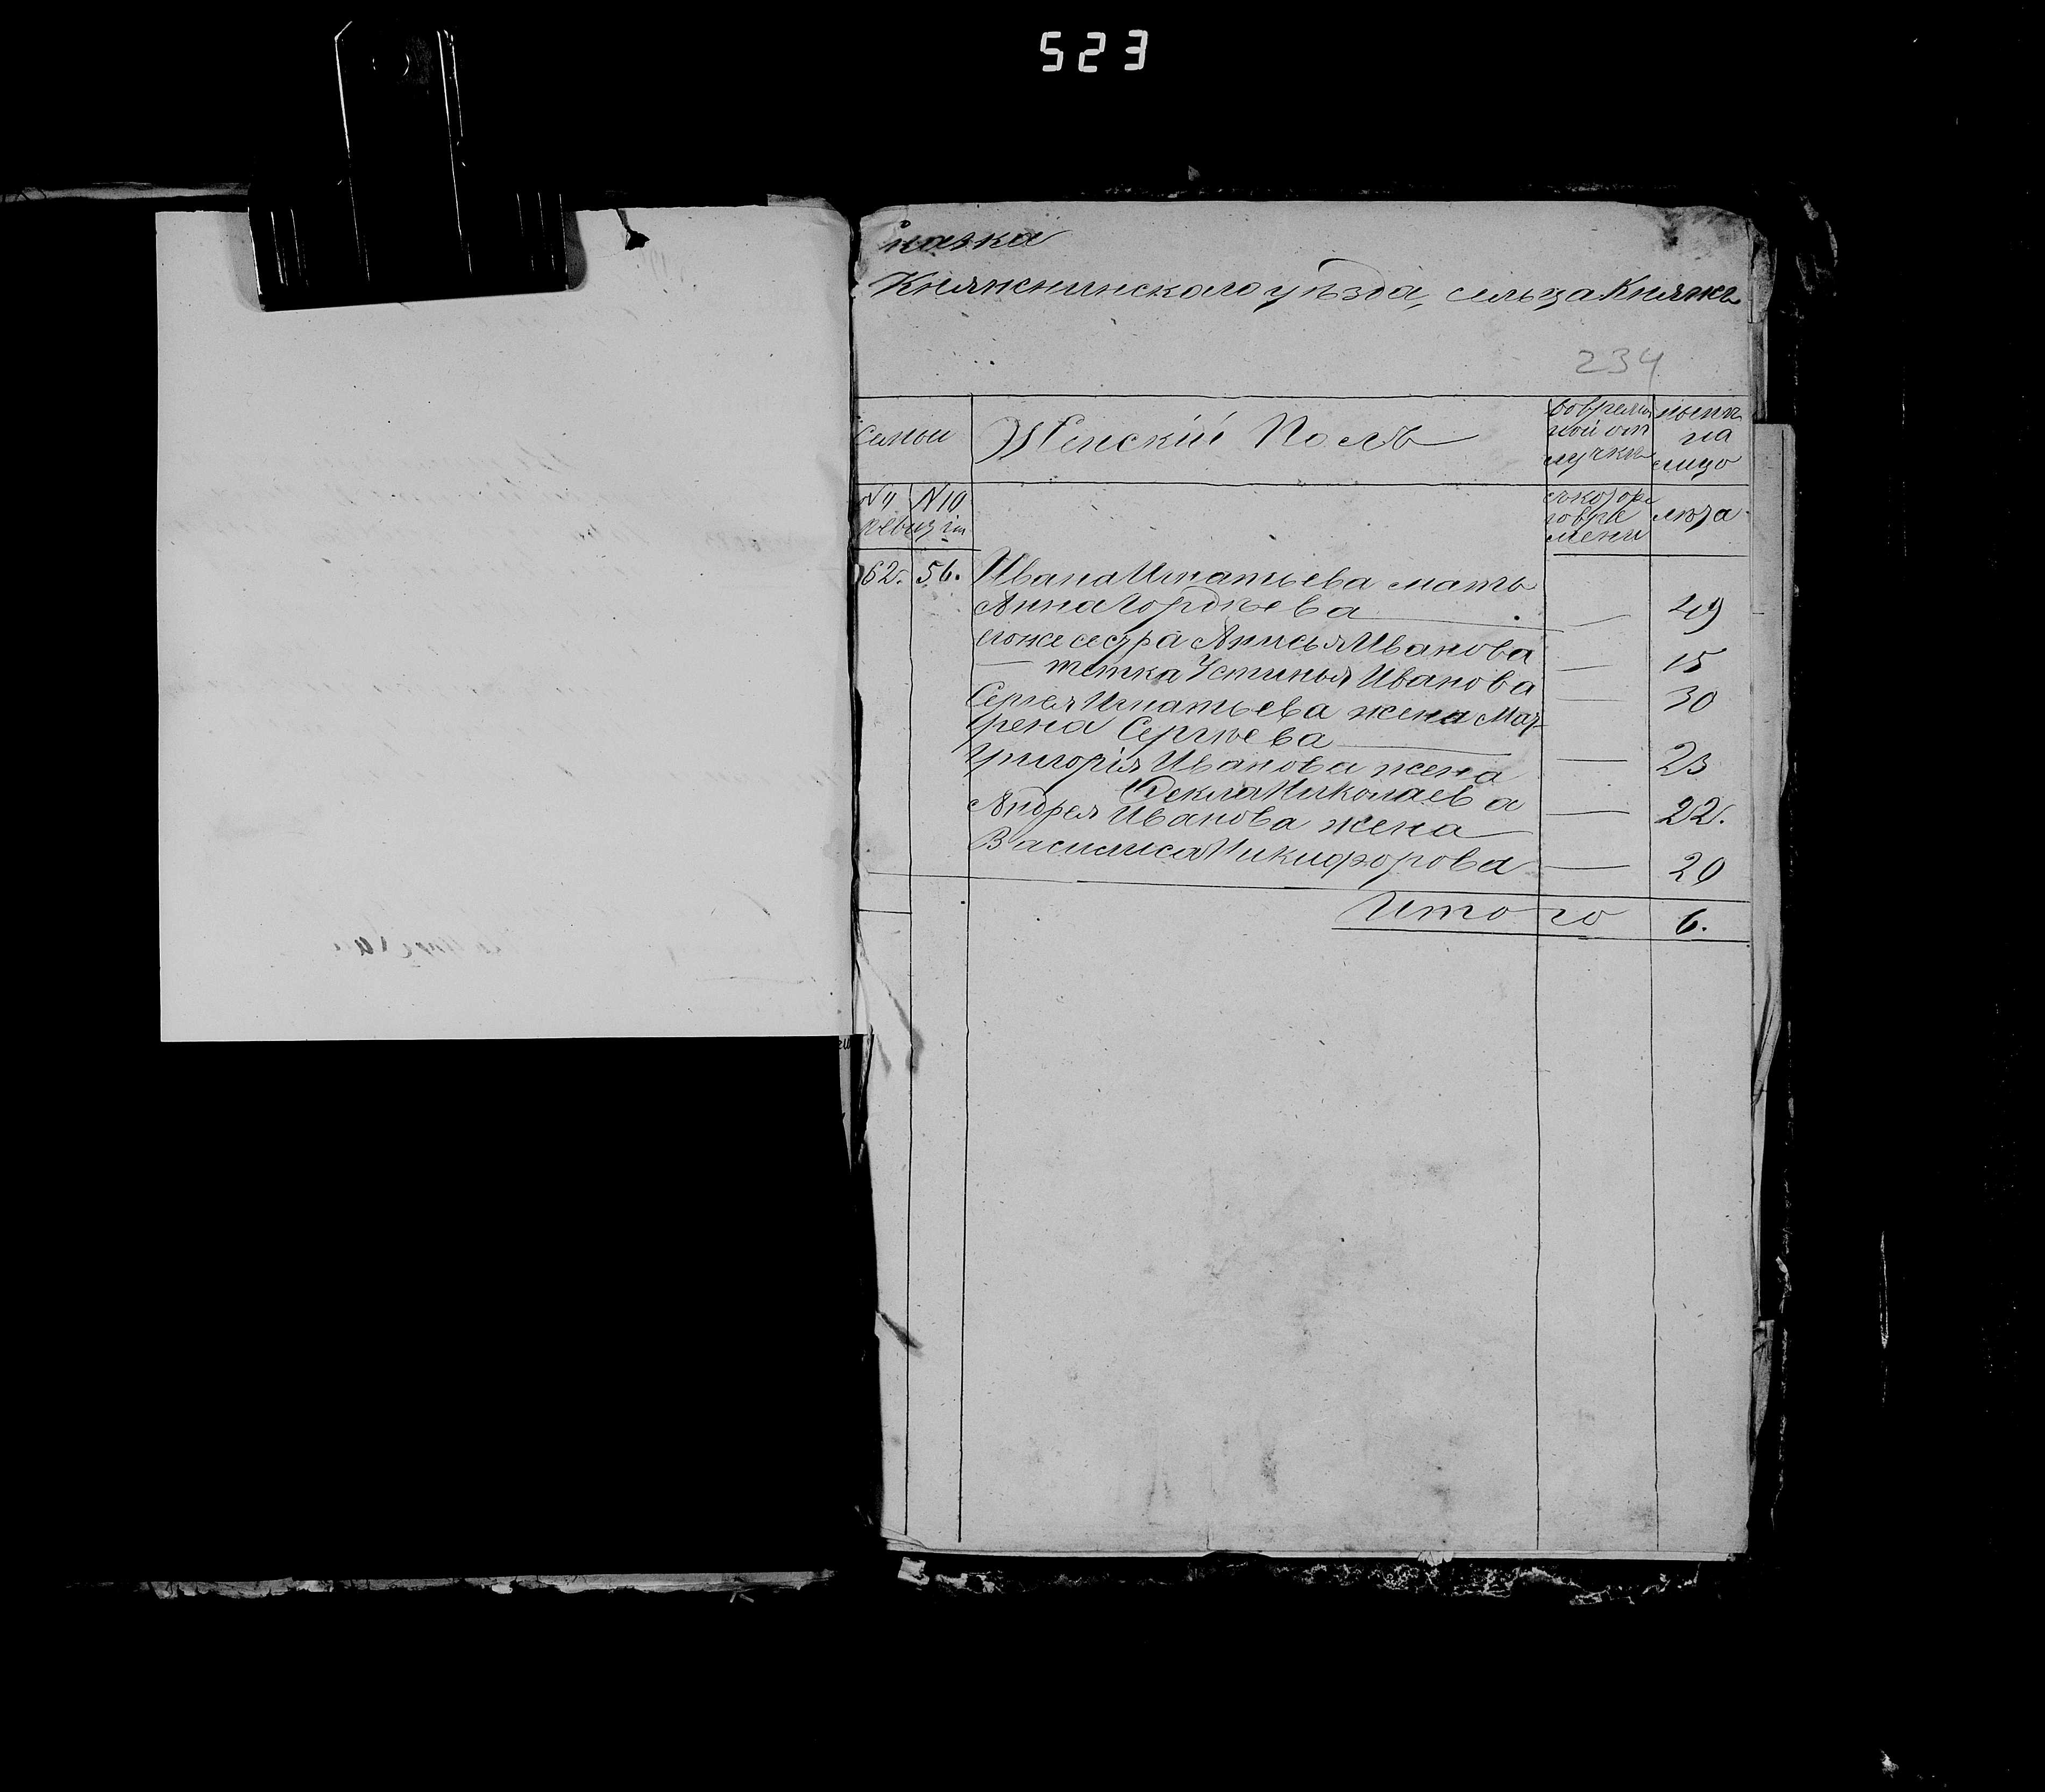 523
сказка
Княгининскаго уѣзда, сельца Княжъ
234
семьи
Женскій Полъ
во времен
ной от
лучкѣ
нынѣ
на
лицо
№ 9 № 10
ревизіи
съ котора
го вре
мени
лѣта
62. 56. Ивана Игнатьева мать
Анна Гордѣева — 49
его же сестра Анисья Иванова — 15
— тетка Устинья Иванова — 30
Сергея Игнатьева жена Мат-
рена Сергѣева — 23
Григорія Иванова жена
Фекла Николаева — 22.
Андрея Иванова жена
Василиса Никифорова — 20
Итого 6.